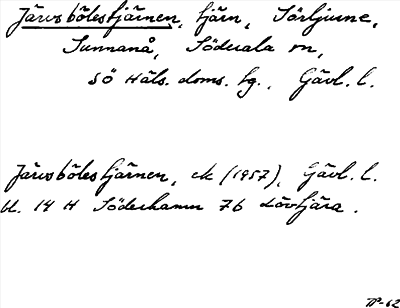 Järvsbölestjärnen, tjärn, Sörljusne,
Sunnanå, Söderala sn,
SÖ Häls. doms. hg., Gävl. l.
Järvsbölestjärnen, ek (1957), Gävl. l.
bl. 14 H Söderhamn 7b Lövtjära.
TP-62